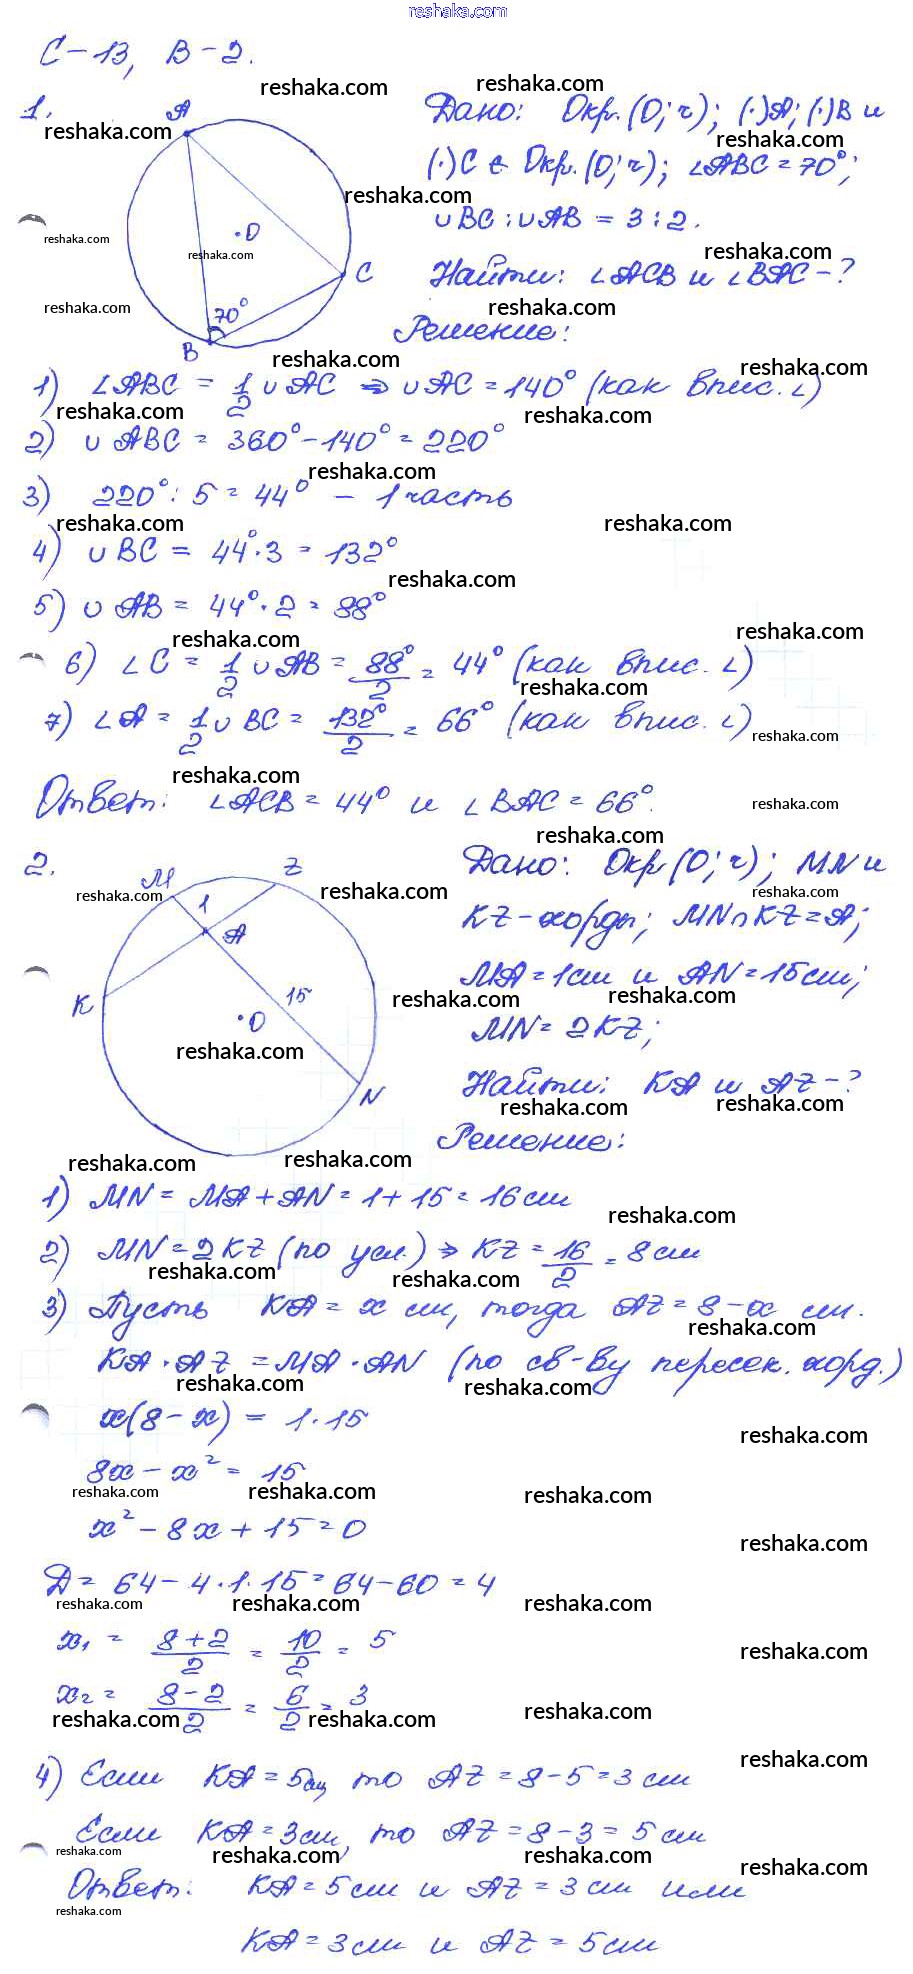 reshaka.com
С-13, В-2.
1.
Дано: Окр.(О; r); (·)А; (·)В и
(·)С ∈ Окр.(О; r); ∠АВС = 70°;
∪ВС : ∪АВ = 3 : 2.
Найти: ∠АСВ и ∠ВАС - ?
А
О
С
70°
В
Решение:
1) ∠АВС = 1/2 ∪АС ⇒ ∪АС = 140° (как впис. ∠)
2) ∪АВС = 360° - 140° = 220°
3) 220° : 5 = 44° - 1 часть
4) ∪ВС = 44° · 3 = 132°
5) ∪АВ = 44° · 2 = 88°
6) ∠С = 1/2 ∪АВ = 88°/2 = 44° (как впис. ∠)
7) ∠А = 1/2 ∪ВС = 132°/2 = 66° (как впис. ∠)
Ответ: ∠АСВ = 44° и ∠ВАС = 66°.
2.
Дано: Окр(О; r); MN и
KZ - хорды; MN∩KZ = A;
MA = 1см и AN = 15см;
MN = 2KZ;
Найти: KA и AZ - ?
M
Z
1
A
K
15
O
N
Решение:
1) MN = MA + AN = 1 + 15 = 16 см
2) MN = 2KZ (по усл.) ⇒ KZ = 16/2 = 8 см
3) Пусть KA = x см, тогда AZ = 8 - x см.
KA · AZ = MA · AN (по св-ву пересек. хорд.)
x(8 - x) = 1 · 15
8x - x² = 15
x² - 8x + 15 = 0
Д = 64 - 4 · 1 · 15 = 64 - 60 = 4
x₁ = (8+2)/2 = 10/2 = 5
x₂ = (8-2)/2 = 6/2 = 3
4) Если KA = 5см, то AZ = 8 - 5 = 3 см
Если KA = 3см, то AZ = 8 - 3 = 5 см
Ответ: KA = 5 см и AZ = 3 см или
KA = 3 см и AZ = 5 см